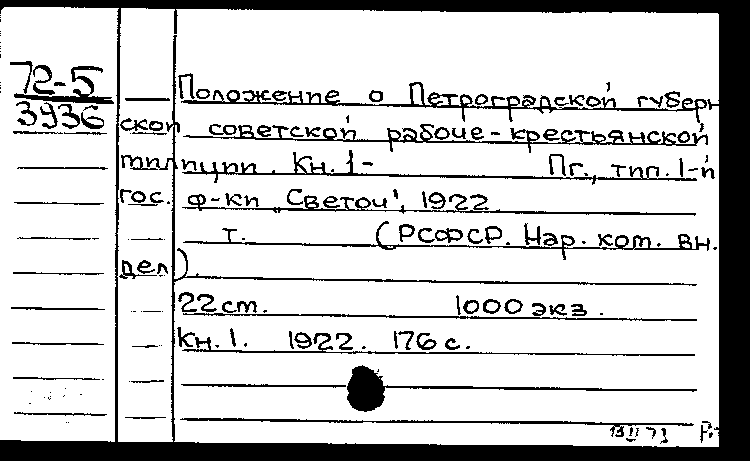 72-5
3936
Положение о Петроградской губерн
ской советской рабоче-крестьянской
милиции. Кн. 1- Пг., тип. 1-й
гос. ф-ки „Светоч", 1922
т. (РСФСР. Нар. ком. вн.
дел).
22 см. 1000 экз.
Кн. 1. 1922. 176 с.